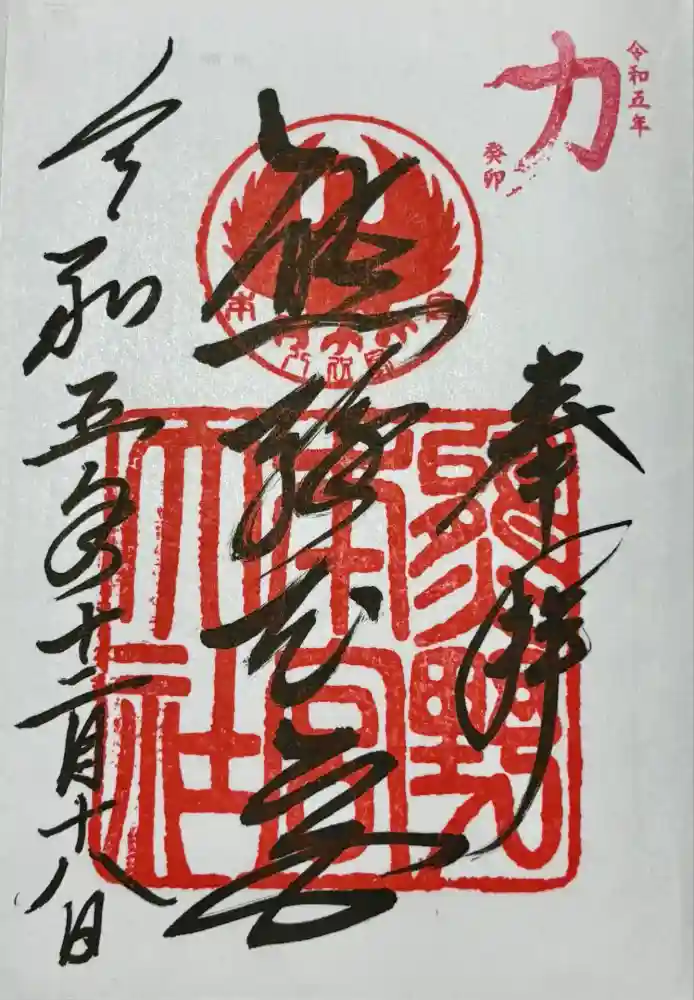 力
令和五年
癸卯
奉拝
熊野本宮
熊野
本宮
大社
令和五年十二月十八日